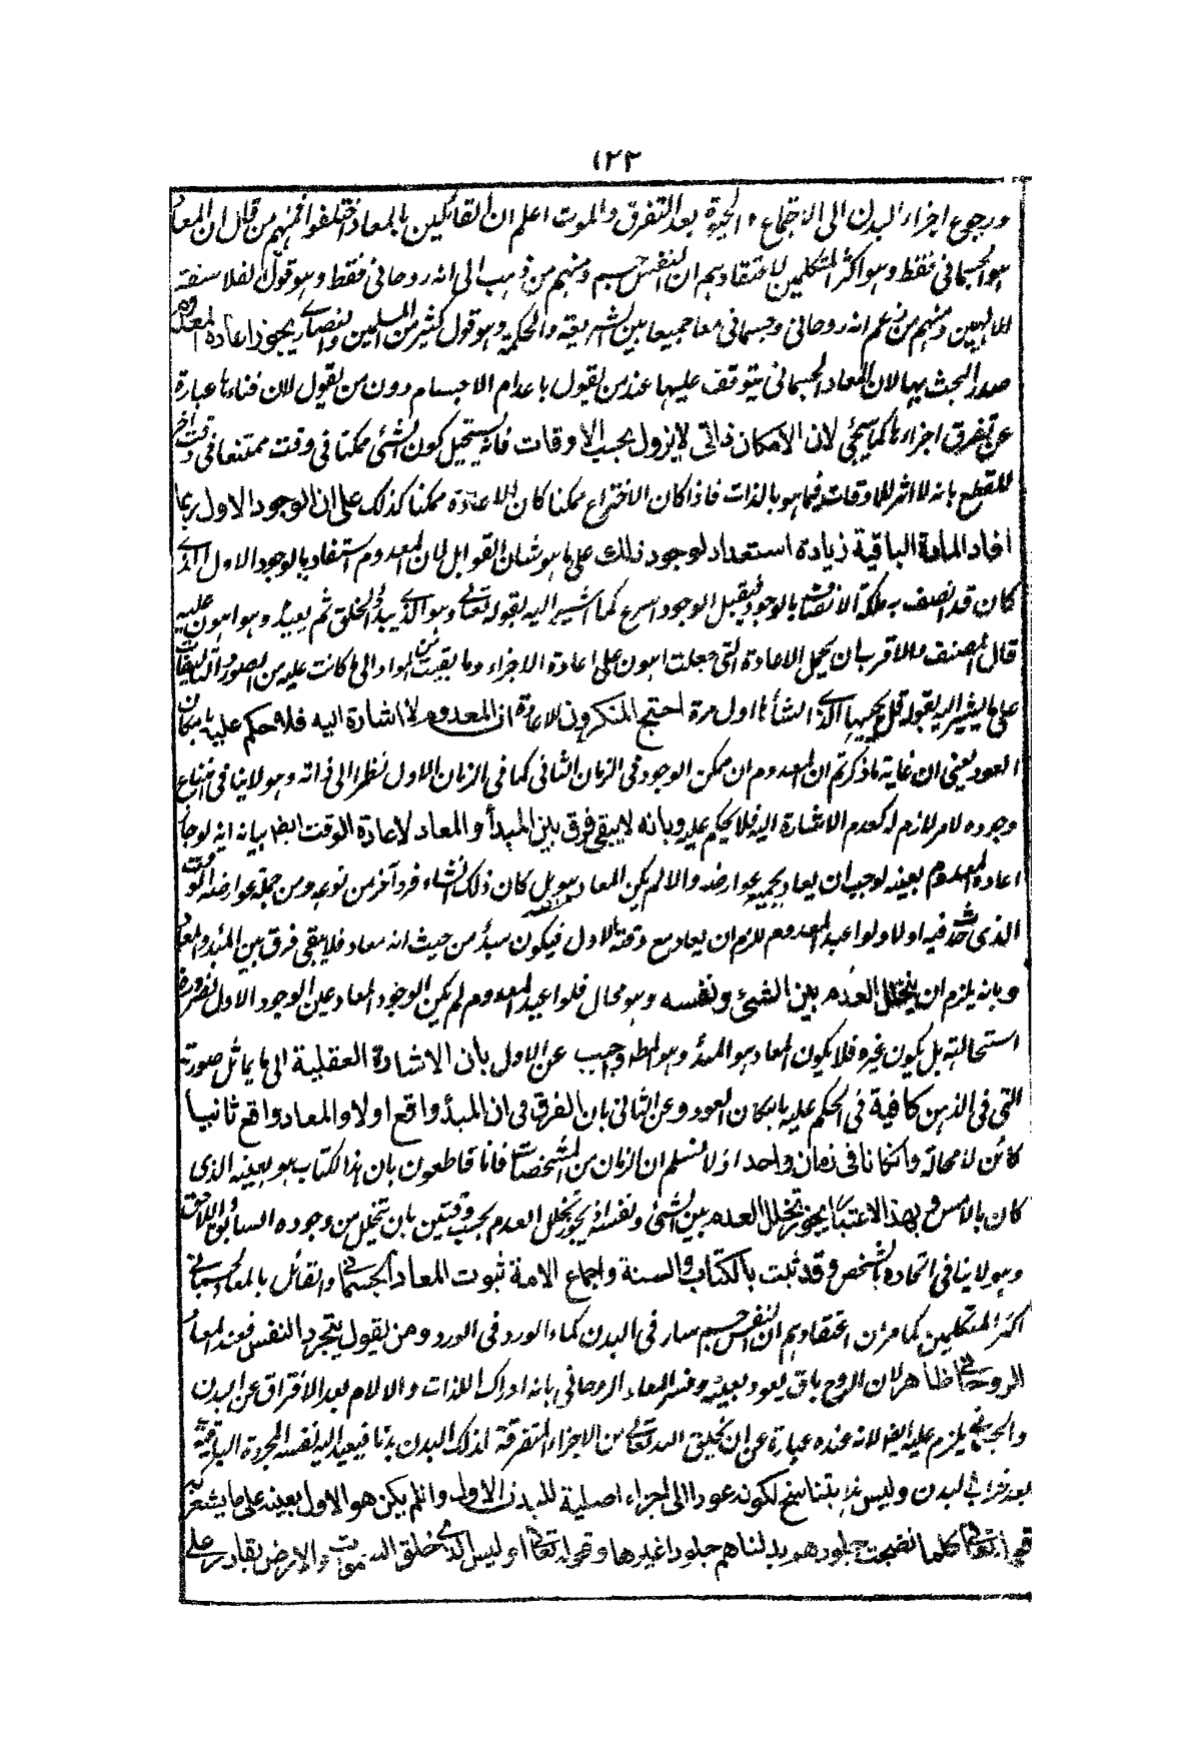 ١٢٢
ورجوع اجزاء البدن الى الاجتماع والحيوة بعد التفرق والموت اعلم ان القائلين بالمعاد اختلفوا فمنهم من قال ان المعاد
هو الجسمانى فقط وهو اكثر المتكلمين لاعتقادهم ان النفس جسم ومنهم من ذهب الى انه روحانى فقط وهو قول الفلاسفة
الالهيين ومنهم من زعم انه روحانى وجسمانى معا جمعيا بين الشريعة والحكمة وهو قول كثير من المسلمين والنصارى يجوز اعادة المعدوم
صدر البحث بها لان المعاد الجسمانى يتوقف عليها عند من يقول باعدام الاجسام دون من يقول لان فناءها عبارة
عن تفرق اجزاءها كما سيجئ لان الامكان ذاتى لا يزول بحسب الاوقات فانه يستحيل كون الشئ ممكنا فى وقت ممتنعا فى وقت اخر
للقطع بانه لا اثر للاوقات فيما هو بالذات فاذا كان الاختراع ممكنا كان الاعادة ممكنا كذلك على ان الوجود الاول ربما
افاد المادة الباقية زيادة استعداد لوجود ذلك على ما هو شان القوابل لان المعدوم استفاد بالوجود الاول الذى
كان قد اتصف به ملكة الاتصاف بالوجود فيقبل الوجود اسرع كما اشير اليه بقوله تعالى وهو الذى يبدؤ الخلق ثم يعيده وهو اهون عليه
قال المصنف والاقرب ان يحمل الاعادة التى جعلت اهون على اعادة الاجزاء وما بقيت من المواد الى ما كانت عليه من الصور والتاليفات
على ما يشير اليه بقوله قل يحييها الذى انشأها اول مرة احتج المنكرون للاعادة ان المعدوم لا اشارة اليه فلا حكم عليه بامكان
العود يعنى ان غاية ما ذكرتم ان المعدوم ان ممكن الوجود فى الزمان الثانى كما فى الزمان الاول نظرا الى ذاته وهو لا ينافى امتناع
وجوده لامر لازم له كعدم الاشارة اليه فلا يحكم عليه وبانه لا يبقى فرق بين المبدأ والمعاد لاعادة الوقت ايضا بيانه انه لو جاز
اعادة المعدوم بعينه لوجب ان يعاد بجميع عوارضه والا لم يكن المعاد هو بل كان ذلك انشاء فرد آخر من نوعه ومن جملة عوارضه الوقت
الذى حدث فيه اولا ولو اعيد المعدوم للزم ان يعاد مع وقته الاول فيكون مبدأ من حيث انه معاد فلا يبقى فرق بين المبدأ والمعاد
وبانه يلزم ان يتخلل العدم بين الشئ ونفسه وهو محال فلو اعيد المعدوم لم يكن الوجود المعاد عين الوجود الاول لضرورة
استحالته بل يكون غيره فلا يكون المعاد هو المبدأ وهو المط واجيب عن الاول بان الاشارة العقلية الى ما يماثل صورته
التى فى الذهن كافية فى الحكم عليه بامكان العود وعن الثانى بان الفرق فى ان المبدأ واقع اولا والمعاد واقع ثانيا
كائن لا محالة وان كانا فى زمان واحد اذ لا نسلم ان الزمان من المشخصات فانا قاطعون بان هذا الكتاب هو بعينه الذى
كان بالامس وبهذا الاعتبار يجوز تخلل العدم بين الشئ ونفسه اذ يجوز تخلل العدم بحسب وقتين بان يتخلل من وجوده السابق واللاحق
وهو لا ينافى اتحاده بالشخص وقد ثبت بالكتاب والسنة واجماع الامة ثبوت المعاد الجسمانى والقائل بالمعاد الجسمانى
اكثر المتكلمين كما مر ان اعتقادهم ان النفس جسم سار فى البدن كماء الورد فى الورد ومن يقول بتجرد النفس فعنده المعاد
الروحانى ظاهر لان الروح باق يعود بعينه وفسر المعاد الروحانى بانه ادراك اللذات والالام بعد الافتراق عن البدن
والجسمانى يلزم عليه ايضا لانه عنده عبارة عن ان يخلق الله تعالى من الاجزاء المتفرقة لذلك البدن بدنا فيعيد اليه نفسه المجردة الباقية
بعد خراب البدن وليس هذا بتناسخ لكونه عودا الى اجزاء اصلية للبدن الاول وان لم يكن هو الاول بعينه على ما يشعر به
قوله تعالى كلما نضجت جلودهم بدلناهم جلودا غيرها وقوله تعالى اوليس الذى خلق السموات والارض بقادر على